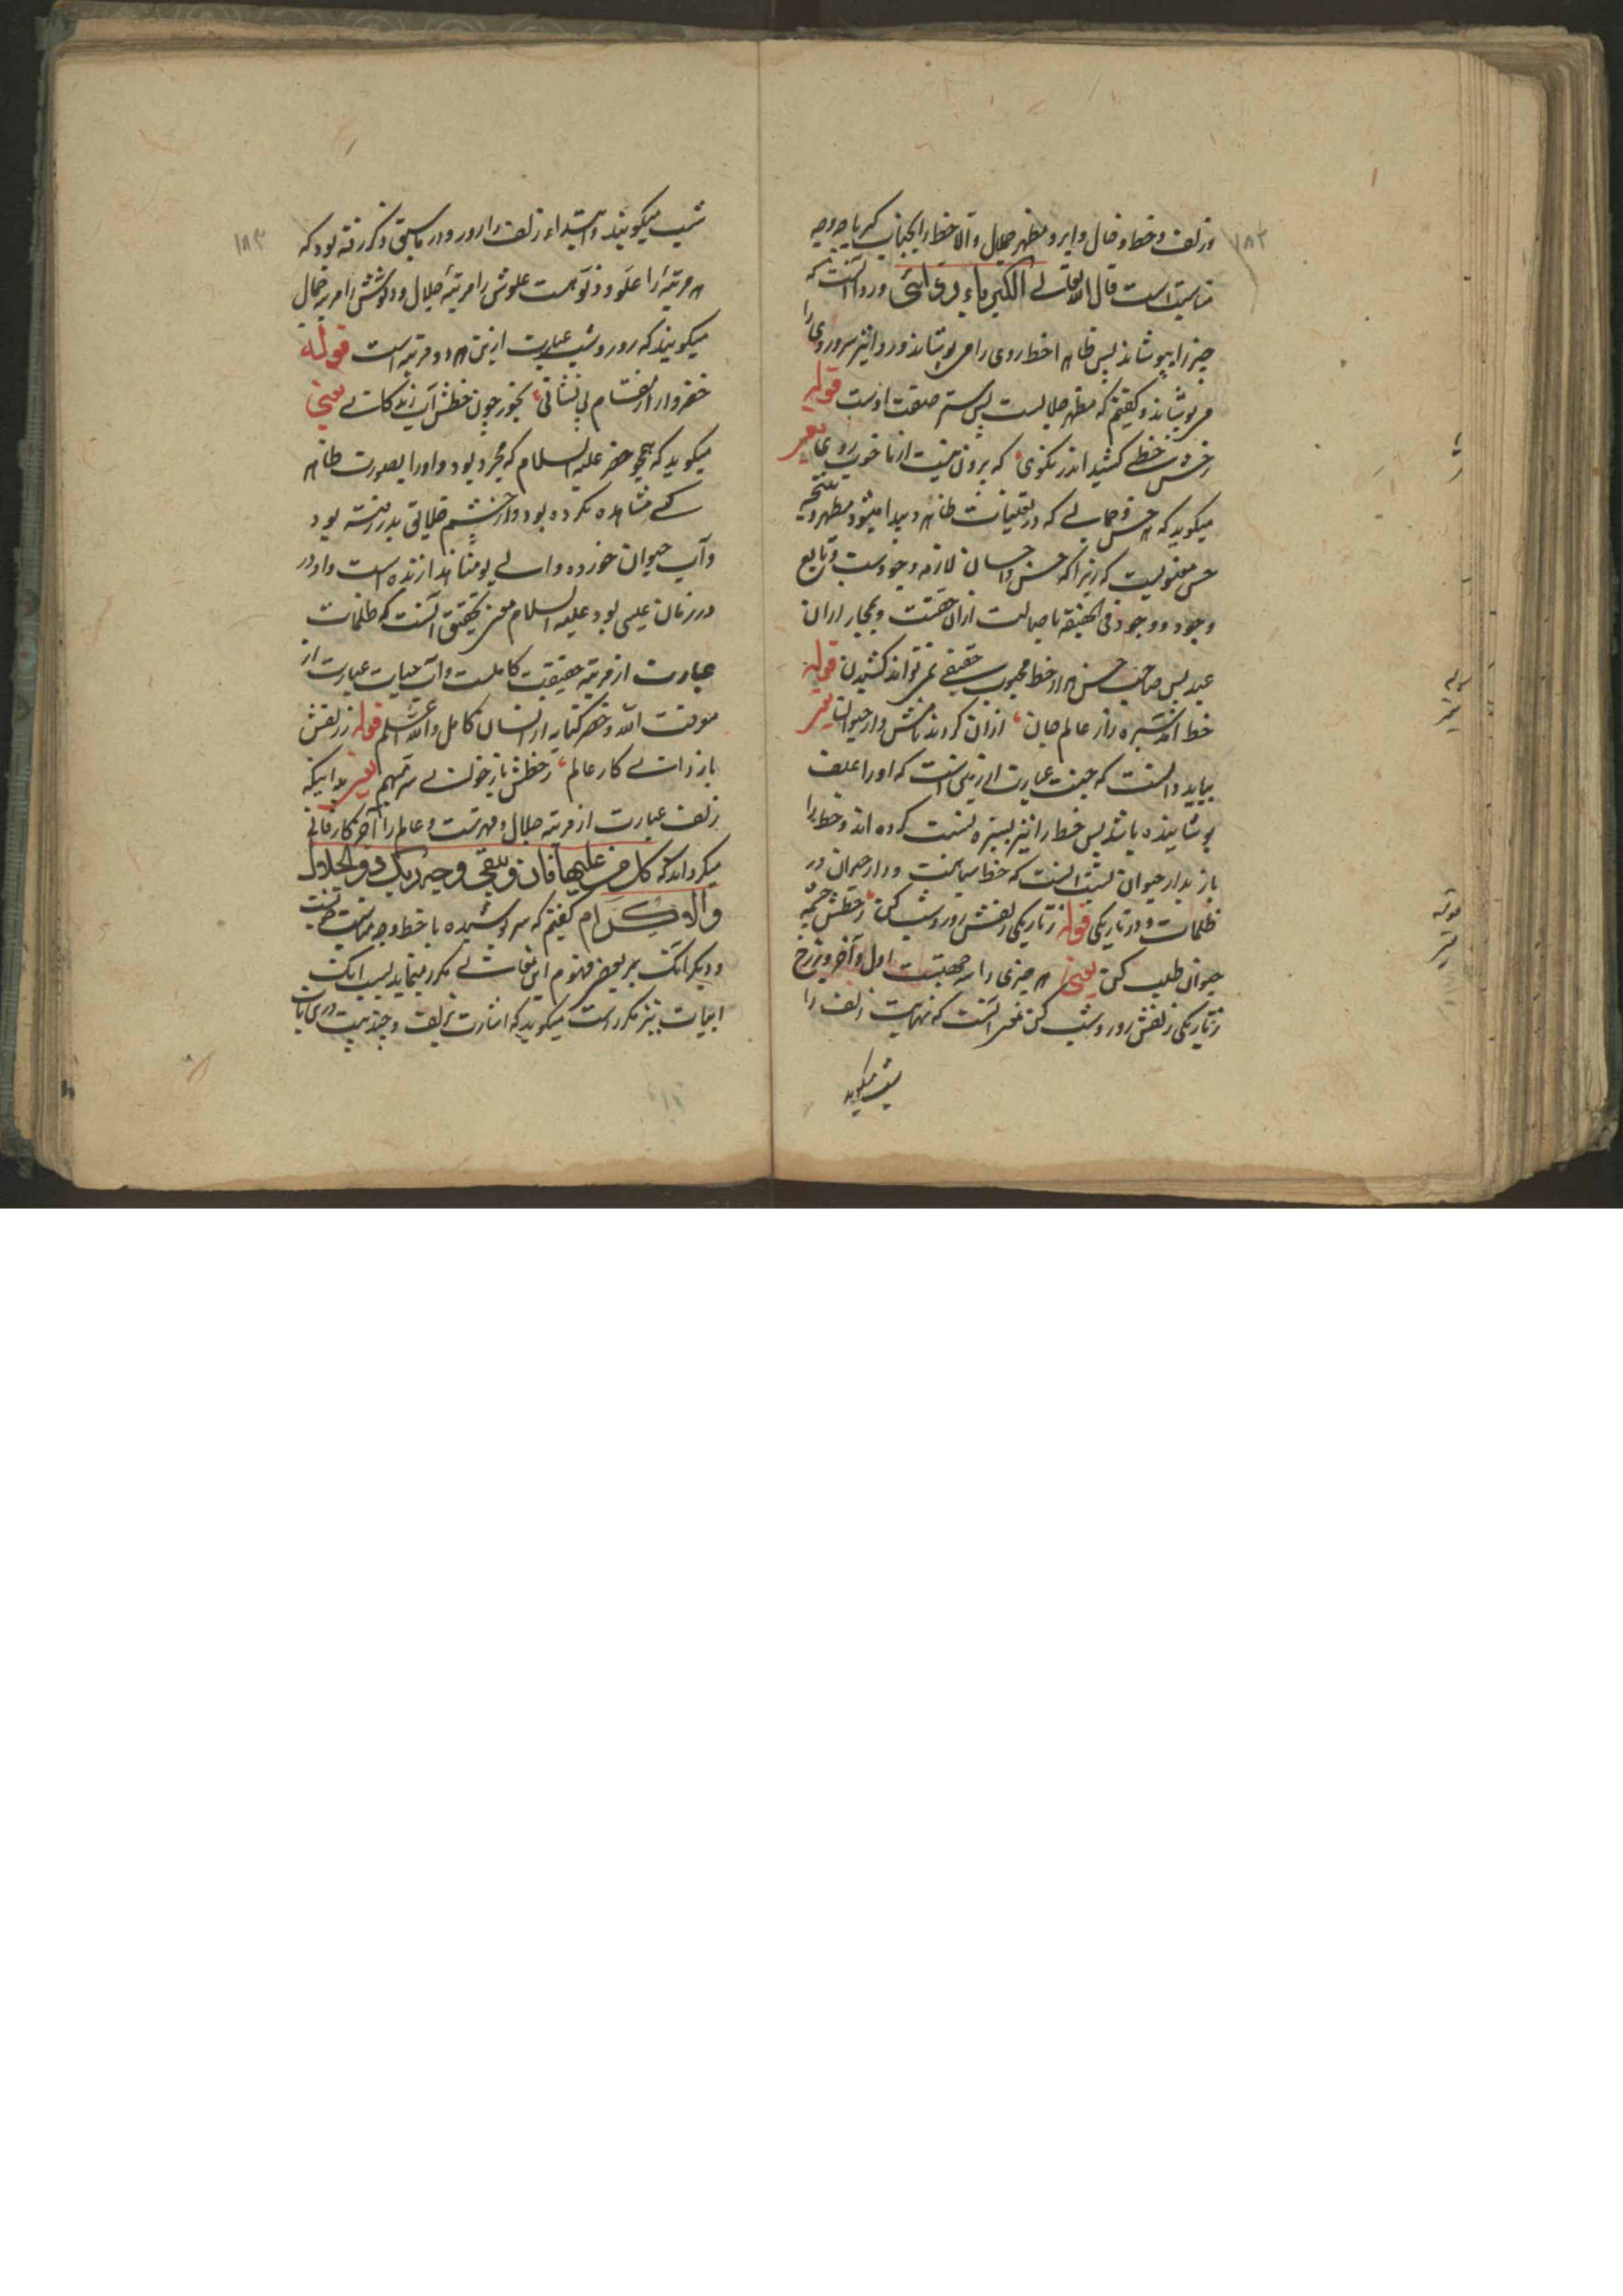 ۱۸۲
وزلف وخط وخال وابرو مظهر جلال والا خط را بجناب کبریا چه وجه
مناسبت است قال الله تعالی الکبریاء ردائی وردا آنست که
چیز را بپوشاند پس ظاهرا خط روی را می پوشاند وردا نیز سر وروی را
می پوشاند وگفتیم که مظهر جلالیست پس ستر صفت اوست قوله
رخش خطی کشید اندر نکوی که برون نیست از ما خوب روی یعنی
میگوید که هر حسن وجمالی که در تعینات ظاهر وپیدا میشود مظهر ونتیجه
حسن معنویست که زیرا که حسن واحسان لازمه وجودست وتابع
وجود ووجود فی الحقیقه باصالت ازان حقست وبمجاز ازان
عبد پس صاحب حسن هرا از خط محبوب حقیقی نمی تواند کشیدن قوله
خط آمد سبزه زار عالم جان ازان کردند نامش دار حیوان یعنی
بباید دانست که جنت عبارت از زمینی است که او را علف
پوشاینده باشد پس خط را نیز بسبزه نسبت کرده اند وخط را
باز بدار حیوان نسبت اینست که خط سیاهست ودار حیوان در
ظلمات ودر تاریکی قوله ز تاریکی زلفش روز وشب کن ز خطش چشمه
حیوان طلب کن یعنی هر چیزی را سه جهتست اول وآخر وبرزخ
ز تاریکی زلفش روز وشب کن غرض آنست که نهایت زلف را
شب میگوید
قوله
یعنی
قوله
یعنی
۱۸۳
شب میگویند وابتداء زلف را روز ودر ماسبق ذکر رفته بود که
هر مرتبهٔ را علو ودنو هست علوش را مرتبهٔ جلال ودنوش را مرتبه جمال
میگویند که روز وشب عبارت ازین هر دو مرتبه است قوله
خضروار از مقام بی نشانی بخور چون خطش آب زندگانی یعنی
میگوید که همچو خضر علیه السلام که مجرد بود واو را بصورت ظاهر
کسی مشاهده نکرده بود واز چشم خلایق بدر رفته بود
وآب حیوان خورده والی یومنا هذا زنده است واو در
در زمان عیسی بود علیه السلام معنی تحقیق آنست که ظلمات
عبارت از مرتبه حقیقت کاملست وآب حیات عبارت از
معرفت الله وخضر کنایه از انسان کامل والله اعلم قوله ز زلفش
باز دانی کار عالم ز خطش باز خوانی سر مبهم یعنی بدانیکه
زلف عبارت از مرتبه جلال وقهرست وعالم را آخر کار فانی
میگرداند که کل من علیها فان ویبقی وجه ربک ذو الجلال
والاکرام گفتیم که سر پوشیده با خط وجه مناسبت چیست
ودیگر آنکه بر بعضی فهوم این مقامات مکرر مینماید بسبب آنکه
ابیات نیز مکررست میگوید که اشارت بزلف وچند بیت در بیان